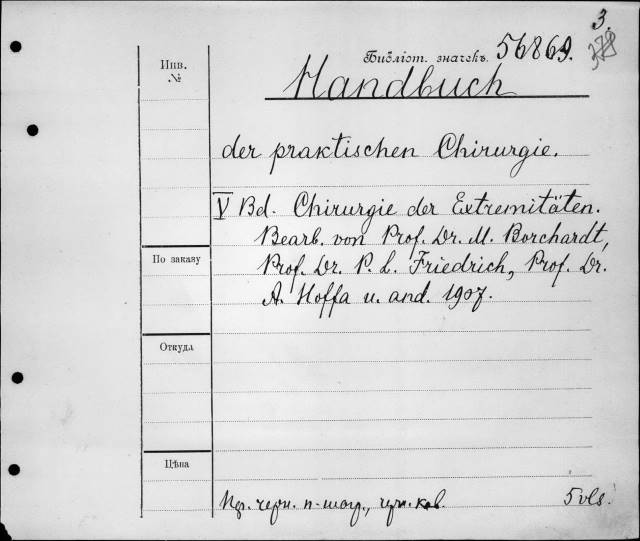 3.
Библіот. значекъ. 56869.
378
Инв.
№
Handbuch
der praktischen Chirurgie.
V Bd. Chirurgie der Extremitäten.
Bearb. von Prof. Dr. M. Borchardt,
По заказу
Prof. Dr. P. L. Friedrich, Prof. Dr.
A. Hoffa u. and. 1907.
Откуда
Цѣна
черн. 5 vls.